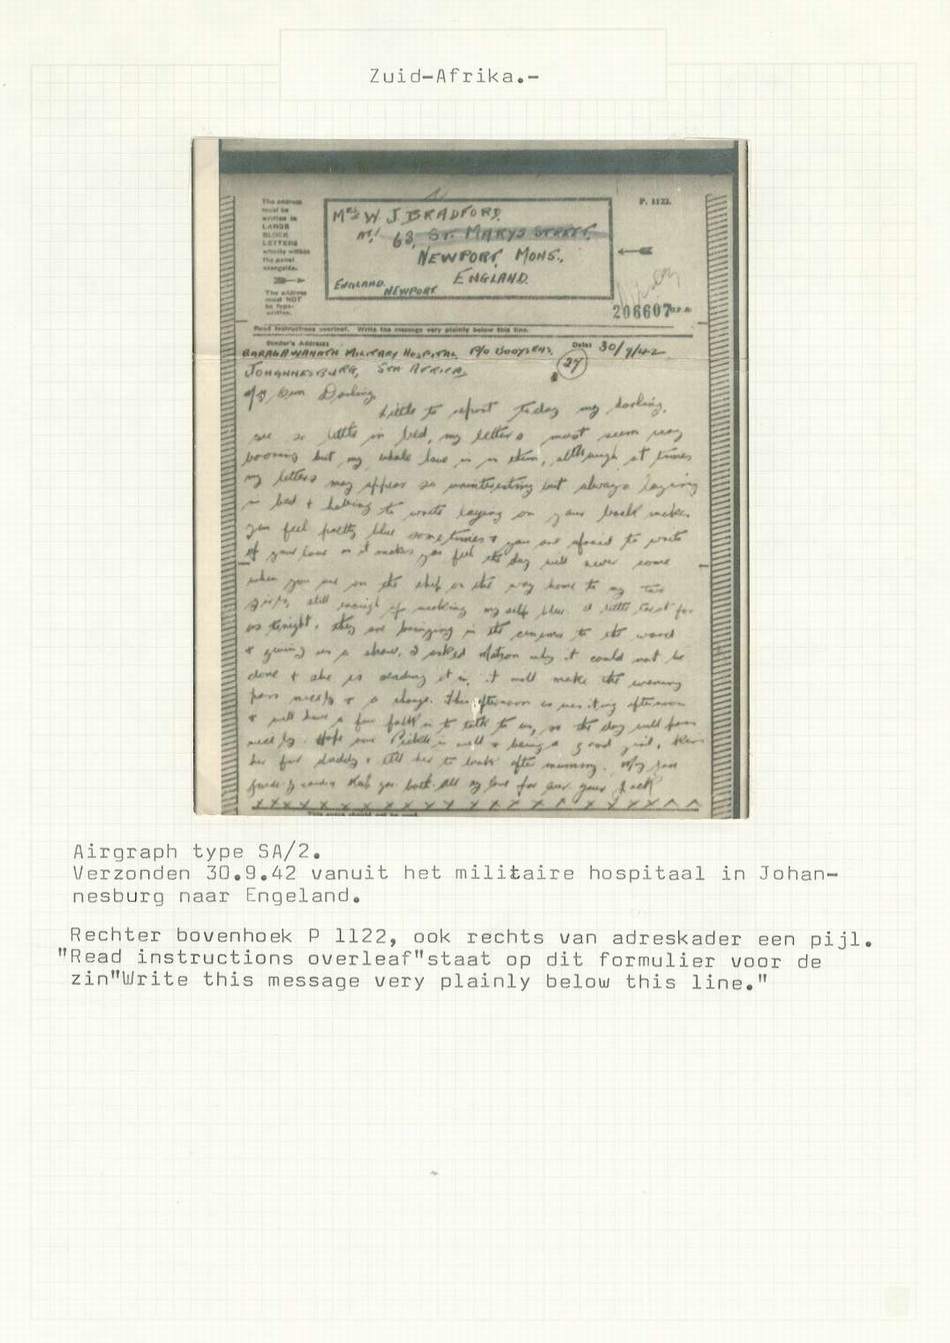 Zuid-Afrika.-
The address
must be
written in
LARGE
BLOCK
LETTERS
wholly within
the panel
alongside.
The address
must NOT
be type-
written.
MRS W. J BRADFORD.
63, ST. MARYS STREET,
NEWPORT, MONS.,
ENGLAND.
ENGLAND.
NEWPORT
P. 1122.
206607
Read instructions overleaf. Write the message very plainly below this line.
Sender's Address
BARAGAWANATH MILITARY HOSPITAL, P/O BOOYSENS.
Date 30/9/42
JOHANNESBURG, STH AFRICA.
27
My Own Darling,
Little to report today my darling,
see so little in bed, my letters must seem very
boring but my whole love is in them, although at times
my letters may appear so uninteresting but always laying
in bed & having to write laying on your back makes
you feel pretty blue sometimes & you are afraid to write
of your love as it makes you feel the day will never come
when you are on the ship on the way home to my two
girls, still enough of making myself blue. A little treat for
us tonight, they are bringing in the cinema to the ward
& giving us a show, I asked Matron why it could not be
done & she is sending it in, it will make the evening
pass nicely & a change. This afternoon is visiting afternoon
& will have a few folk in to talk to us, so the day will pass
nicely. Hope our Pickle is well & being a good girl, kiss
her for daddy & tell her to look after mummy.
all my love for ever your Jack
x x x x x x x x x x x x x x x x x x x x
Airgraph type SA/2.
Verzonden 30.9.42 vanuit het militaire hospitaal in Johan-
nesburg naar Engeland.
Rechter bovenhoek P 1122, ook rechts van adreskader een pijl.
"Read instructions overleaf"staat op dit formulier voor de
zin"Write this message very plainly below this line."